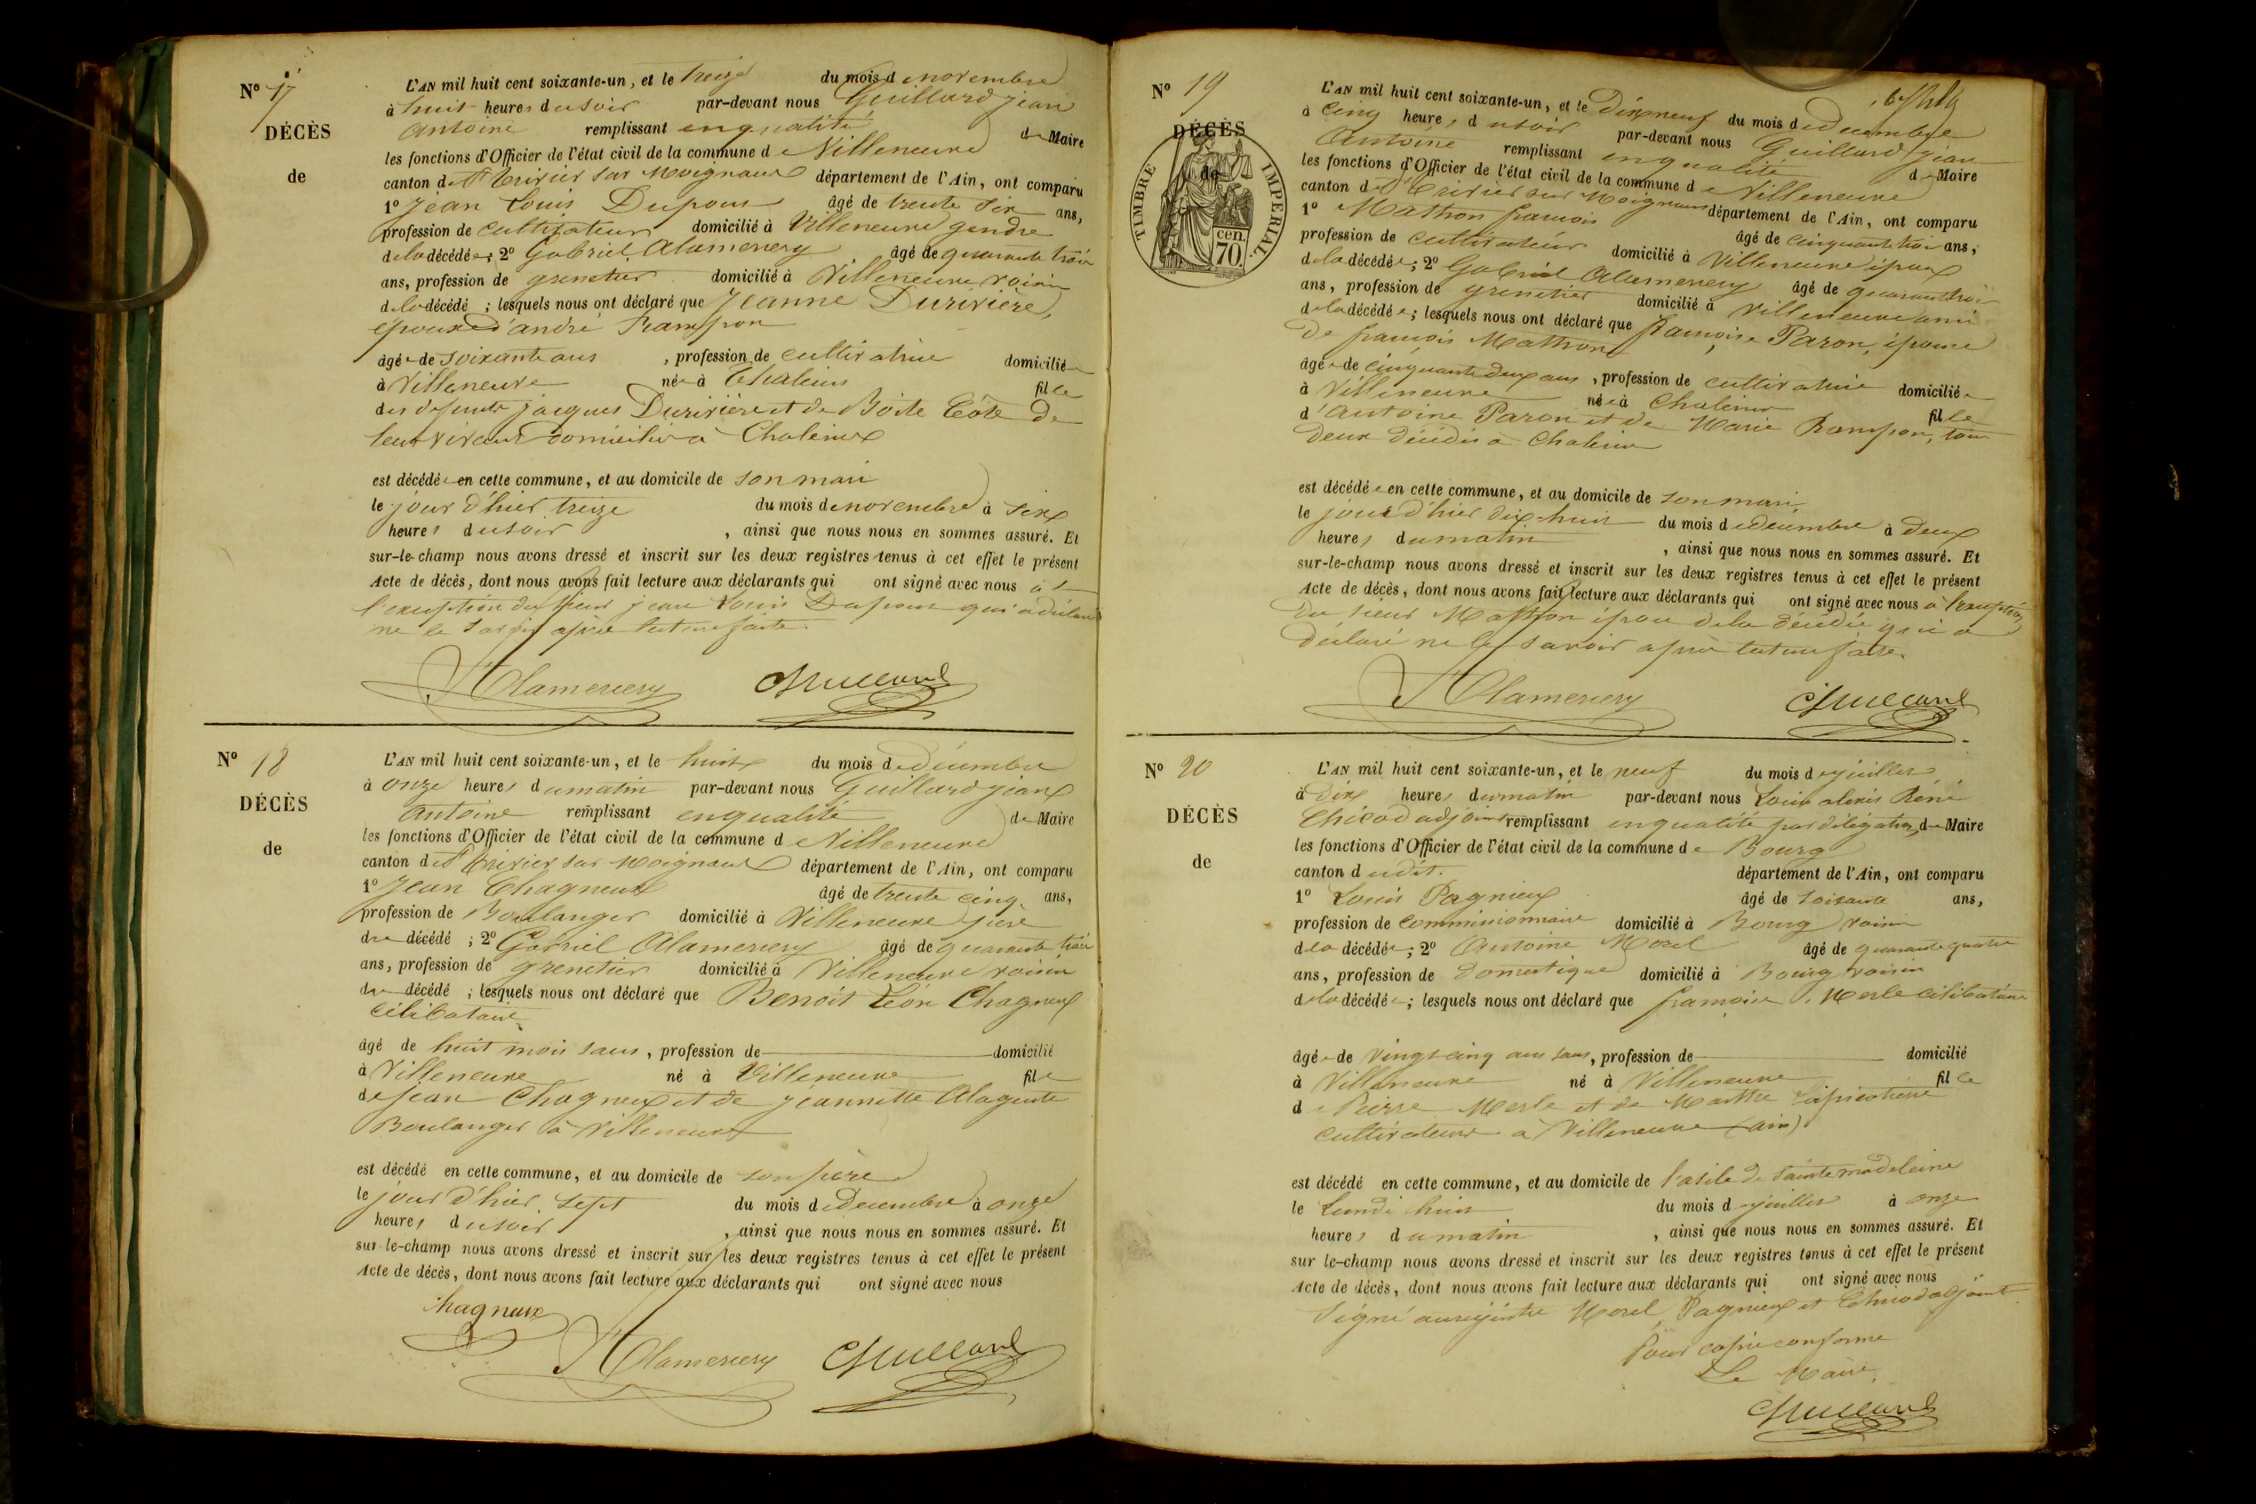 Nº 17
DÉCÈS
de
L'AN mil huit cent soixante-un, et le treize du mois de novembre
à huit heures du soir par-devant nous Guillard jean
antoine remplissant en qualité de Maire
les fonctions d'Officier de l'état civil de la commune de Villeneuve
canton de St trivier sur moignans département de l'Ain, ont comparu
1º Jean Louis Dupour âgé de trente six ans,
profession de cultivateur domicilié à Villeneuve gendre
de la décédée; 2º Gabriel Alamercery âgé de quarante trois
ans, profession de grenetier domicilié à Villeneuve voisin
de la décédé; lesquels nous ont déclaré que Jeanne Durivière,
épouse d'andré Rampon
âgée de soixante ans, profession de cultivatrice domiciliée
à Villeneuve née à Chaleins fille
des defunts jacques Durivière et de Boite Cote de
leur vivant domiciliés à Chaleins
est décédée en cette commune, et au domicile de son mari
le jour d'hier treize du mois de novembre à six
heures du soir, ainsi que nous nous en sommes assuré. Et
sur-le-champ nous avons dressé et inscrit sur les deux registres tenus à cet effet le présent
Acte de décès, dont nous avons fait lecture aux déclarants qui ont signé avec nous à
l'exception du sieur jean Louis Dupour qui a déclaré
ne le savoir après lecture faite.
Alamercery Guillard
Nº 18
DÉCÈS
de
L'AN mil huit cent soixante-un, et le huit du mois de décembre
à onze heures du matin par-devant nous Guillard jean
antoine remplissant en qualité de Maire
les fonctions d'Officier de l'état civil de la commune de Villeneuve
canton de St trivier sur moignans département de l'Ain, ont comparu
1º Jean Chagneux âgé de trente cinq ans,
profession de Boulanger domicilié à Villeneuve père
du décédé; 2º Gabriel Alamercery âgé de quarante trois
ans, profession de grenetier domicilié à Villeneuve voisin
du décédé; lesquels nous ont déclaré que Benoit Léon Chagneux
célibataire
âgé de huit mois sans, profession de domicilié
à Villeneuve né à Villeneuve fils
de jean Chagneux et de jeannette Alagente
Boulanger à Villeneuve
est décédé en cette commune, et au domicile de son père
le jour d'hier sept du mois de Decembre à onze
heures du soir, ainsi que nous nous en sommes assuré. Et
sur-le-champ nous avons dressé et inscrit sur les deux registres tenus à cet effet le présent
Acte de décès, dont nous avons fait lecture aux déclarants qui ont signé avec nous
Chagneux
Alamercery Guillard
Nº 19
DÉCÈS
de
TIMBRE IMPERIAL
70 cen.
L'AN mil huit cent soixante-un, et le Dix neuf du mois de Decembre
à cinq heures du soir par-devant nous Guillard jean
Antoine remplissant en qualité de Maire
les fonctions d'Officier de l'état civil de la commune de Villeneuve
canton de St trivier sur Moignans département de l'Ain, ont comparu
1º Mathon francois âgé de cinquante trois ans,
profession de cultivateur domicilié à Villeneuve époux
de la décédée; 2º Gabriel Alamercery âgé de quarante trois
ans, profession de grenetier domicilié à Villeneuve ami
de la décédée; lesquels nous ont déclaré que françoise Paron, épouse
de françois Mathon
âgée de cinquante deux ans, profession de cultivatrice domiciliée
à Villeneuve née à Chaleins fille
d'Antoine Paron et de Marie Rampon, tous
deux décédés à Chaleins
est décédée en cette commune, et au domicile de son mari
le jour d'hier dix huit du mois de Decembre à deux
heures du matin, ainsi que nous nous en sommes assuré. Et
sur-le-champ nous avons dressé et inscrit sur les deux registres tenus à cet effet le présent
Acte de décès, dont nous avons fait lecture aux déclarants qui ont signé avec nous à l'exception
du sieur Mathon époux de la décédée qui a
déclaré ne le savoir après lecture faite.
Alamercery Guillard
Nº 20
DÉCÈS
de
L'AN mil huit cent soixante-un, et le neuf du mois de juillet
à Dix heures du matin par-devant nous Louis alexis René
Chicod adjoint remplissant en qualité par délégation de Maire
les fonctions d'Officier de l'état civil de la commune de Bourg
canton dudit. département de l'Ain, ont comparu
1º Louis Pagnieux âgé de soixante ans,
profession de commissionnaire domicilié à Bourg voisin
de la décédée; 2º Antoine Morel âgé de quarante quatre
ans, profession de domestique domicilié à Bourg voisin
de la décédée; lesquels nous ont déclaré que françoise Merle célibataire
âgée de vingt cinq ans sans, profession de domicilié
à Villeneuve né à Villeneuve fille
de Pierre Merle et de Marthe
cultivateurs à Villeneuve (ain)
est décédé en cette commune, et au domicile de l'asile de sainte madeleine
le Lundi huit du mois de juillet à onze
heures du matin, ainsi que nous nous en sommes assuré. Et
sur le-champ nous avons dressé et inscrit sur les deux registres tenus à cet effet le présent
Acte de décès, dont nous avons fait lecture aux déclarants qui ont signé avec nous
Signé au registre Morel, Pagnieux et Chicod adjoint
Pour copie conforme
Le Maire,
Guillard